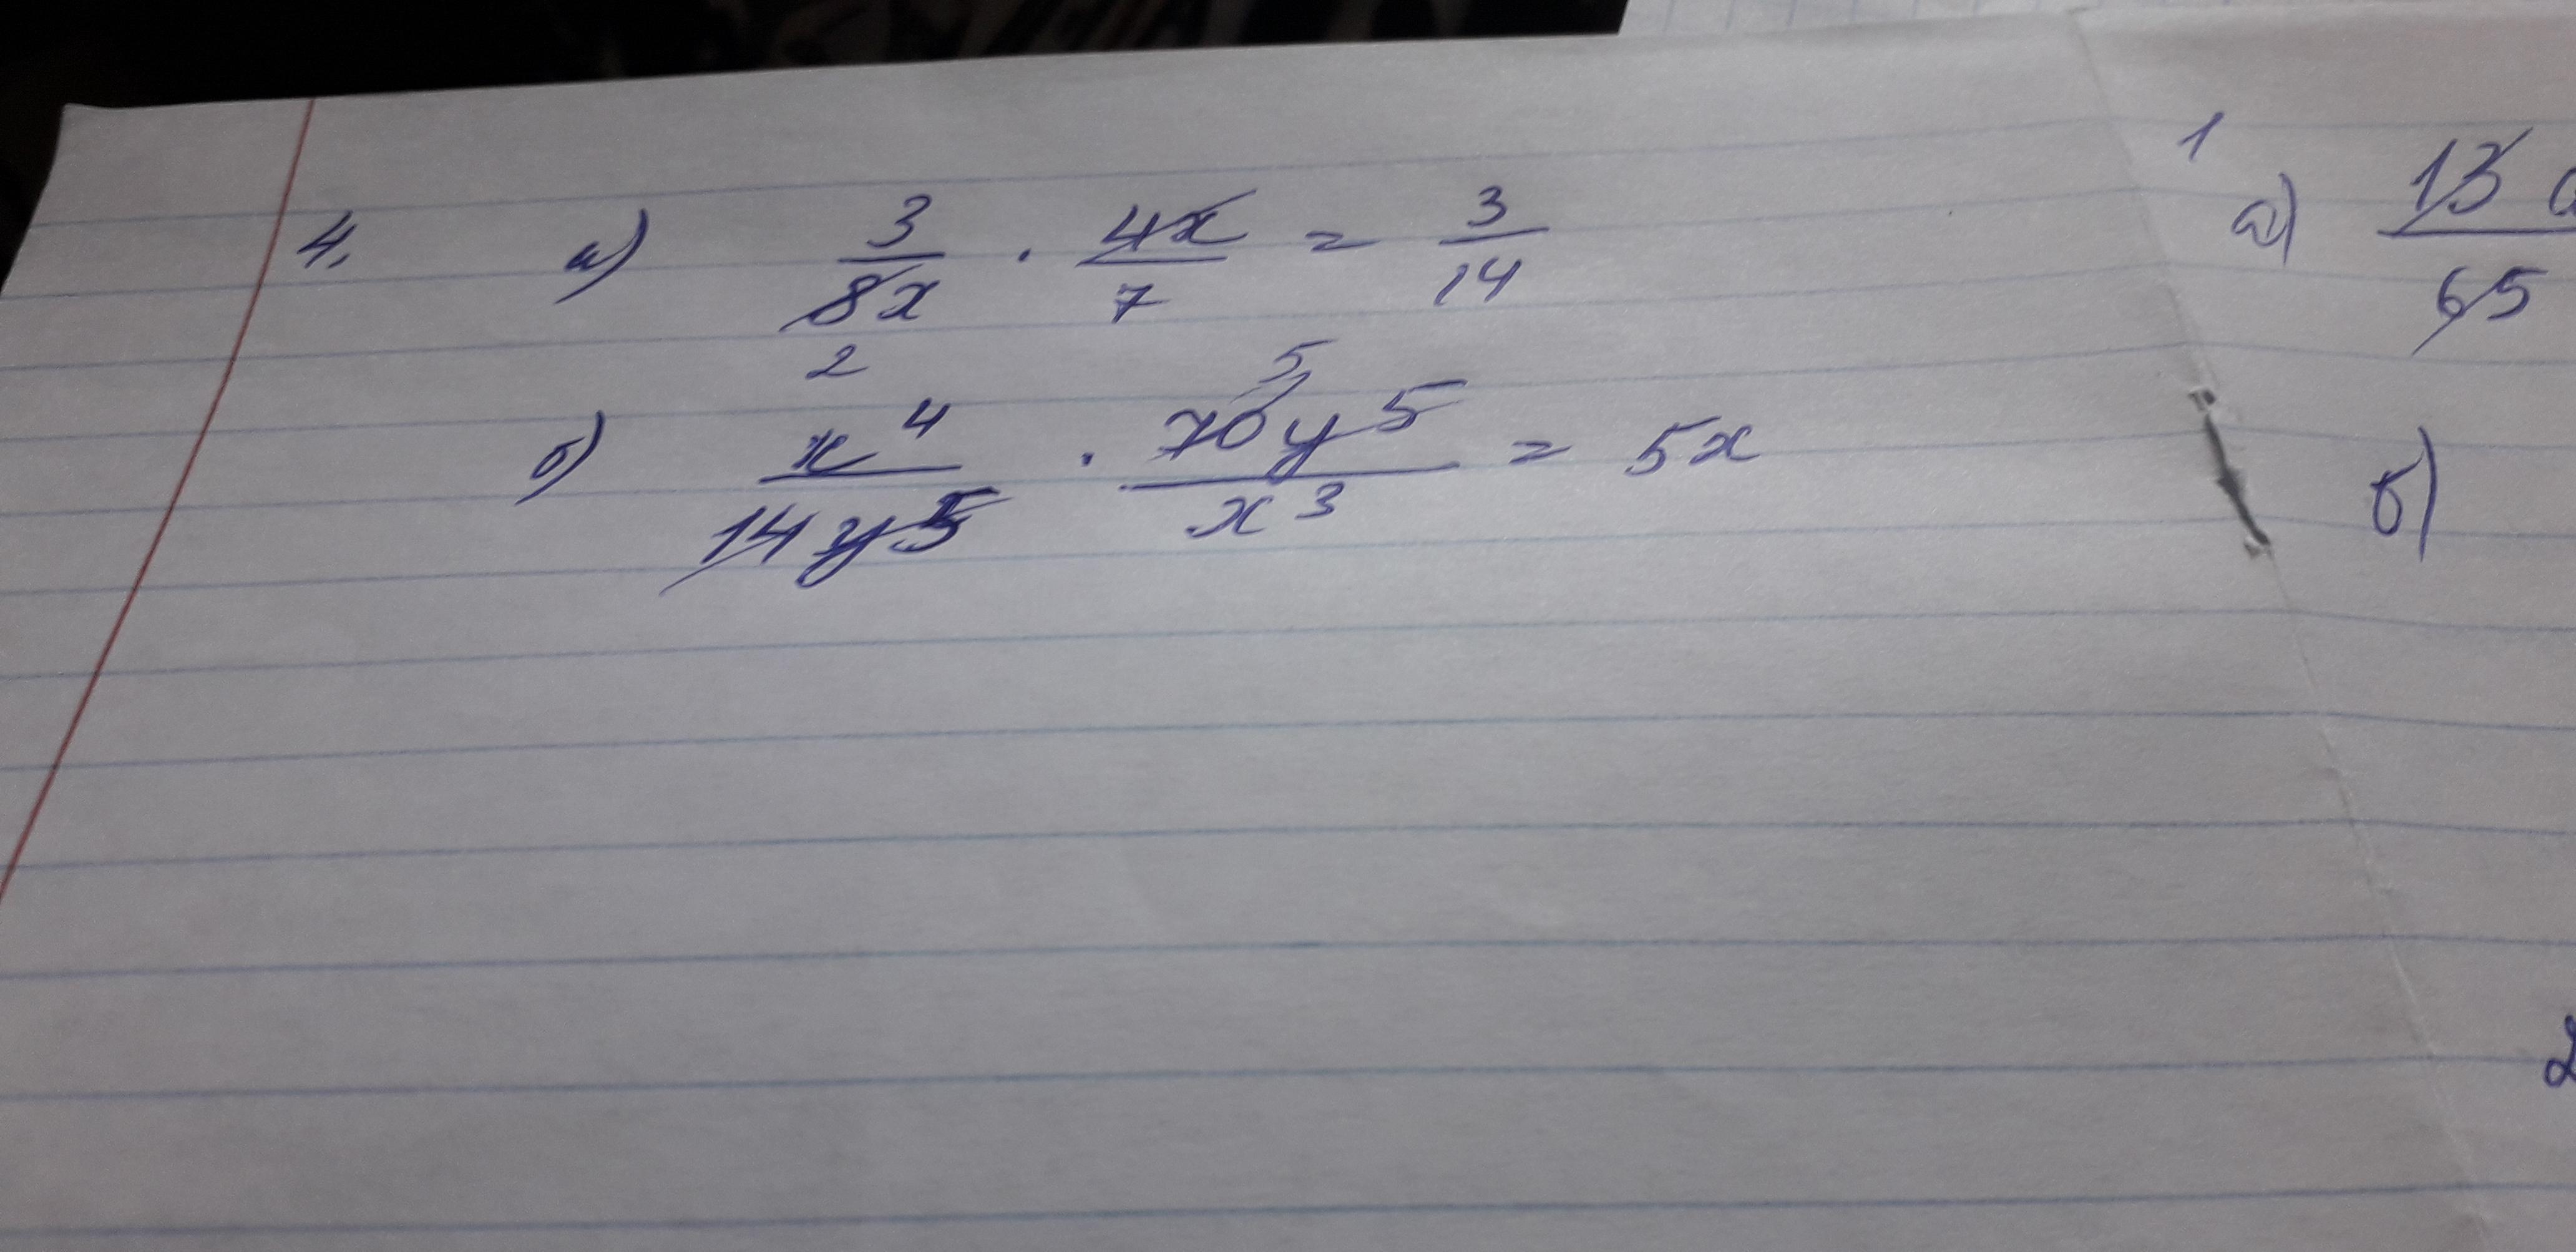 4. а) 3/8x · 4x/7 = 3/14
2
5
б) x⁴/14y⁵ · 70y⁵/x³ = 5x
1
а) 13/65
б)